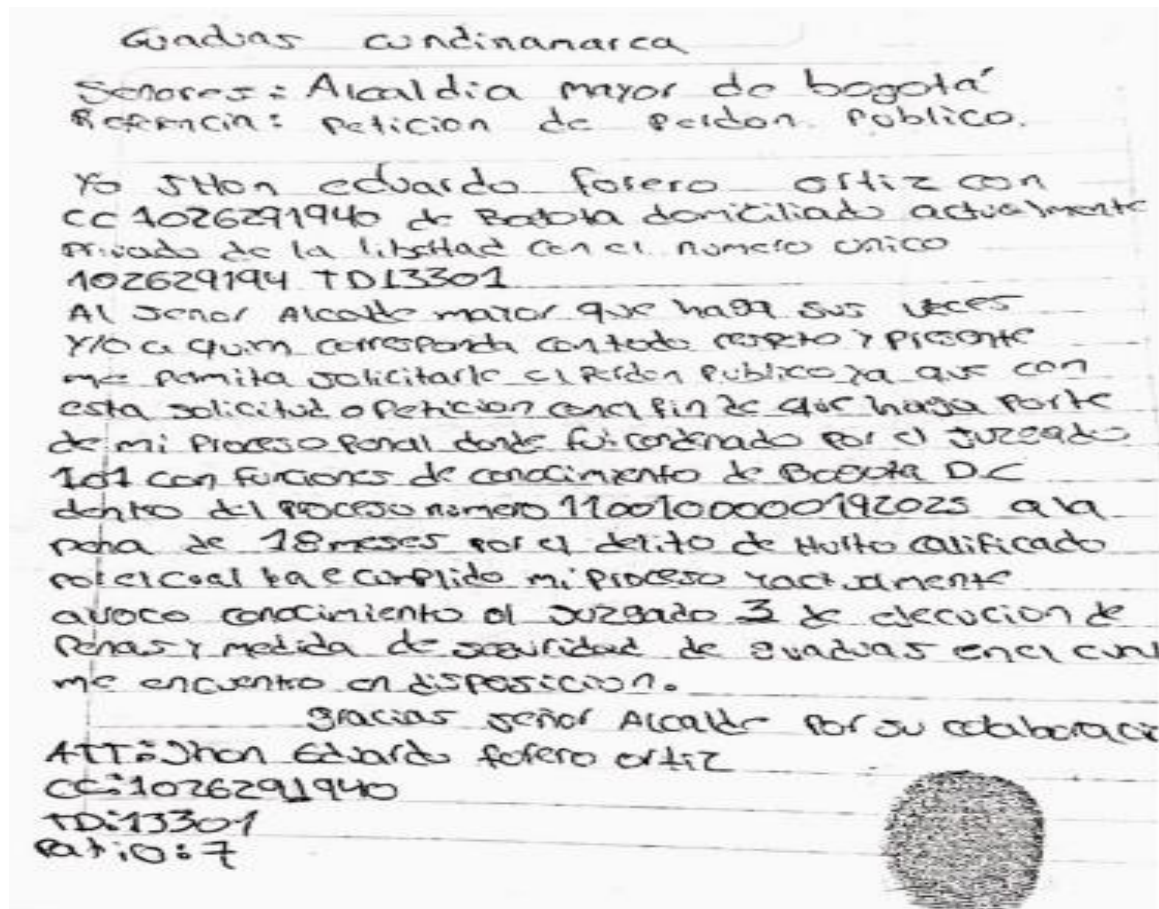 Guaduas cundinamarca
Señores: Alcaldia mayor de bogotá
Referencia: Peticion de Perdon Publico.
Yo JHon eduardo forero ortiz con
CC 1026291940 de Bogota domiciliado actualmente
Privado de la libertad con el numero unico
102629194 TD13301
Al señor Alcalde mayor que haga sus veces
Y/o a quien corresponda con todo respeto y presente
me permita solicitarle el Perdon Publico ya que con
esta solicitud o Peticion con el fin de que haga Parte
de mi Proceso Penal donde fui condenado por el Juzgado
101 con funciones de conocimiento de Bogota D.C
dentro del proceso numero 1100100000192025 a la
pena de 18 meses por el delito de Hurto calificado
por el cual he cumplido mi proceso y actualmente
avoco conocimiento el Juzgado 3 de ejecucion de
Penas y medida de seguridad de guaduas en el cual
me encuentro en disposicion.
gracias señor Alcalde Por su colaboraci
ATT: Jhon Eduardo forero ortiz
CC: 1026291940
TD: 13301
Patio: 7